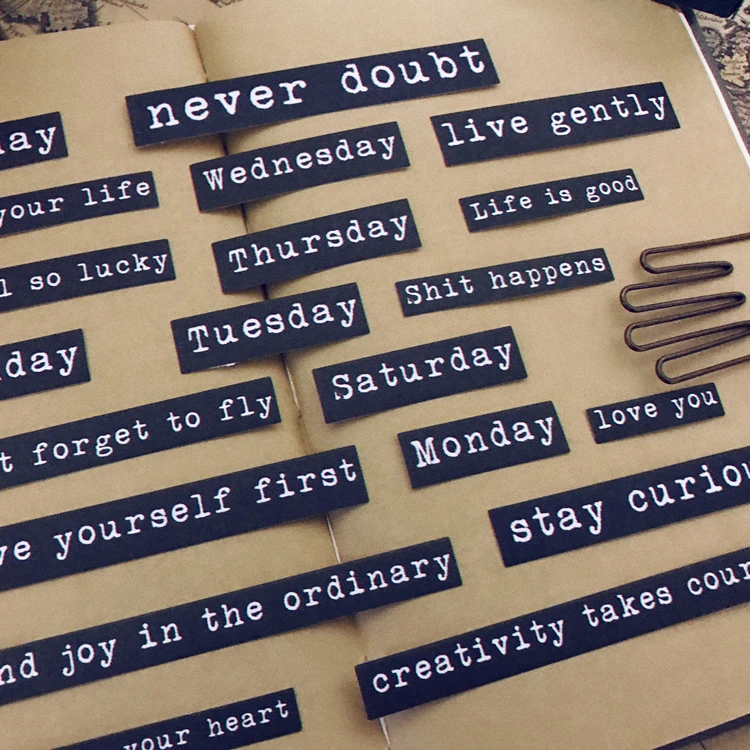 never doubt
ay
Wednesday
live gently
your life
Life is good
Thursday
l so lucky
Shit happens
Tuesday
day
Saturday
t forget to fly
love you
Monday
ve yourself first
stay curiou
nd joy in the ordinary
creativity takes cour
your heart